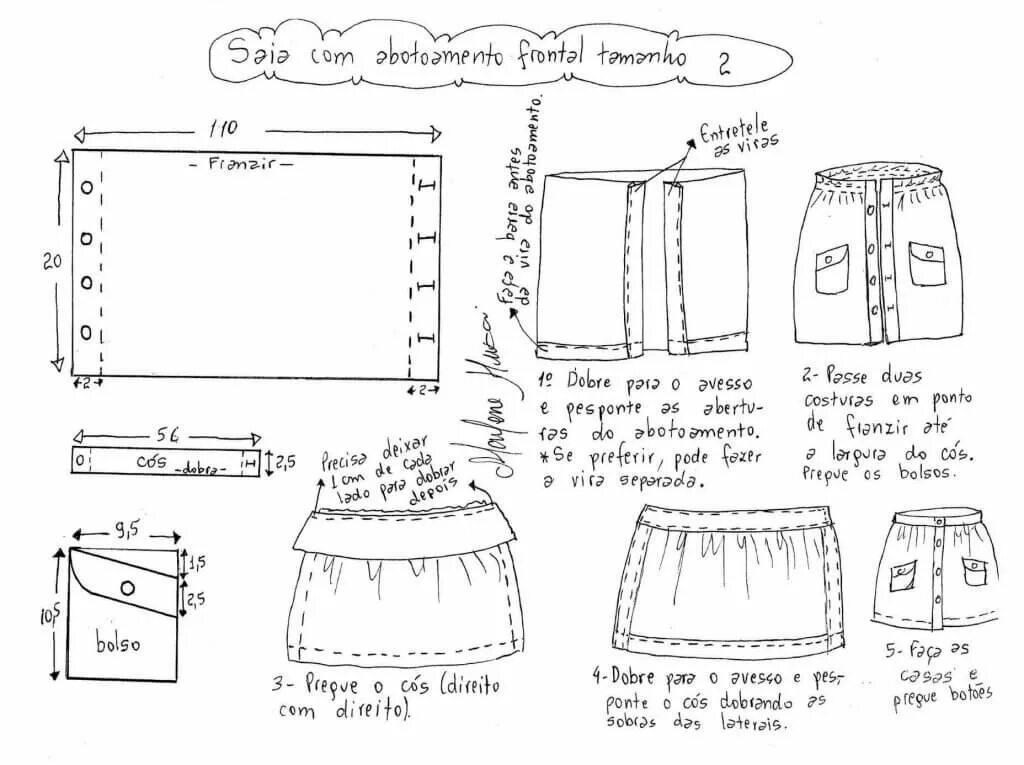 Saia com abotoamento frontal tamanho 2
110
- Franzir -
20
2
2
56
cós -dobra-
2,5
9,5
1,5
2,5
10,5
bolso
Faça a barra antes
da vira do abotoamento.
Entretele
as viras
1º Dobre para o avesso
e pesponte as abertu-
ras do abotoamento.
*Se preferir, pode fazer
a vira separada.
2- Passe duas
costuras em ponto
de franzir até
a largura do cós.
Pregue os bolsos.
Precisa deixar
1 cm de cada
lado para dobrar
depois
3- Pregue o cós (direito
com direito).
4- Dobre para o avesso e pes-
ponte o cós dobrando as
sobras das laterais.
5- Faça as
casas e
pregue botões
Marlene Mukai